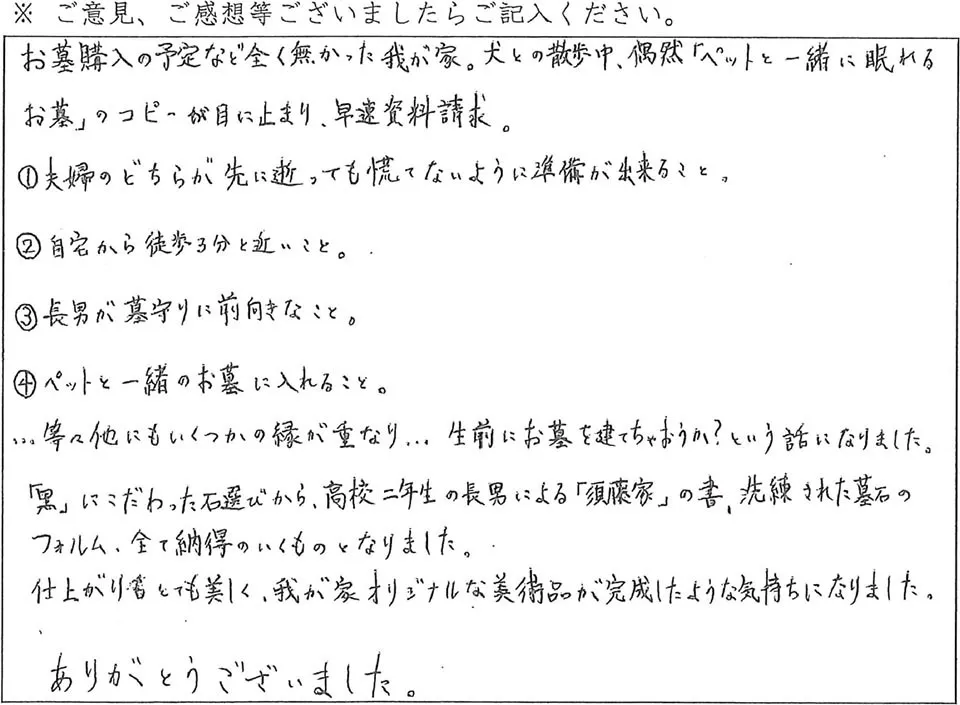 ※ ご意見、ご感想等ございましたらご記入ください。
お墓購入の予定など全く無かった我が家。犬との散歩中、偶然「ペットと一緒に眠れる
お墓」のコピーが目に止まり、早速資料請求。
①夫婦のどちらが先に逝っても慌てないように準備が出来ること。
②自宅から徒歩3分と近いこと。
③長男が墓守りに前向きなこと。
④ペットと一緒のお墓に入れること。
…等々他にもいくつかの縁が重なり… 生前にお墓を建てちゃおうか?という話になりました。
「黒」にこだわった石選びから、高校二年生の長男による「須藤家」の書、洗練された墓石の
フォルム、全て納得のいくものとなりました。
仕上がりとても美しく、我が家オリジナルな美術品が完成したような気持ちになりました。
ありがとうございました。